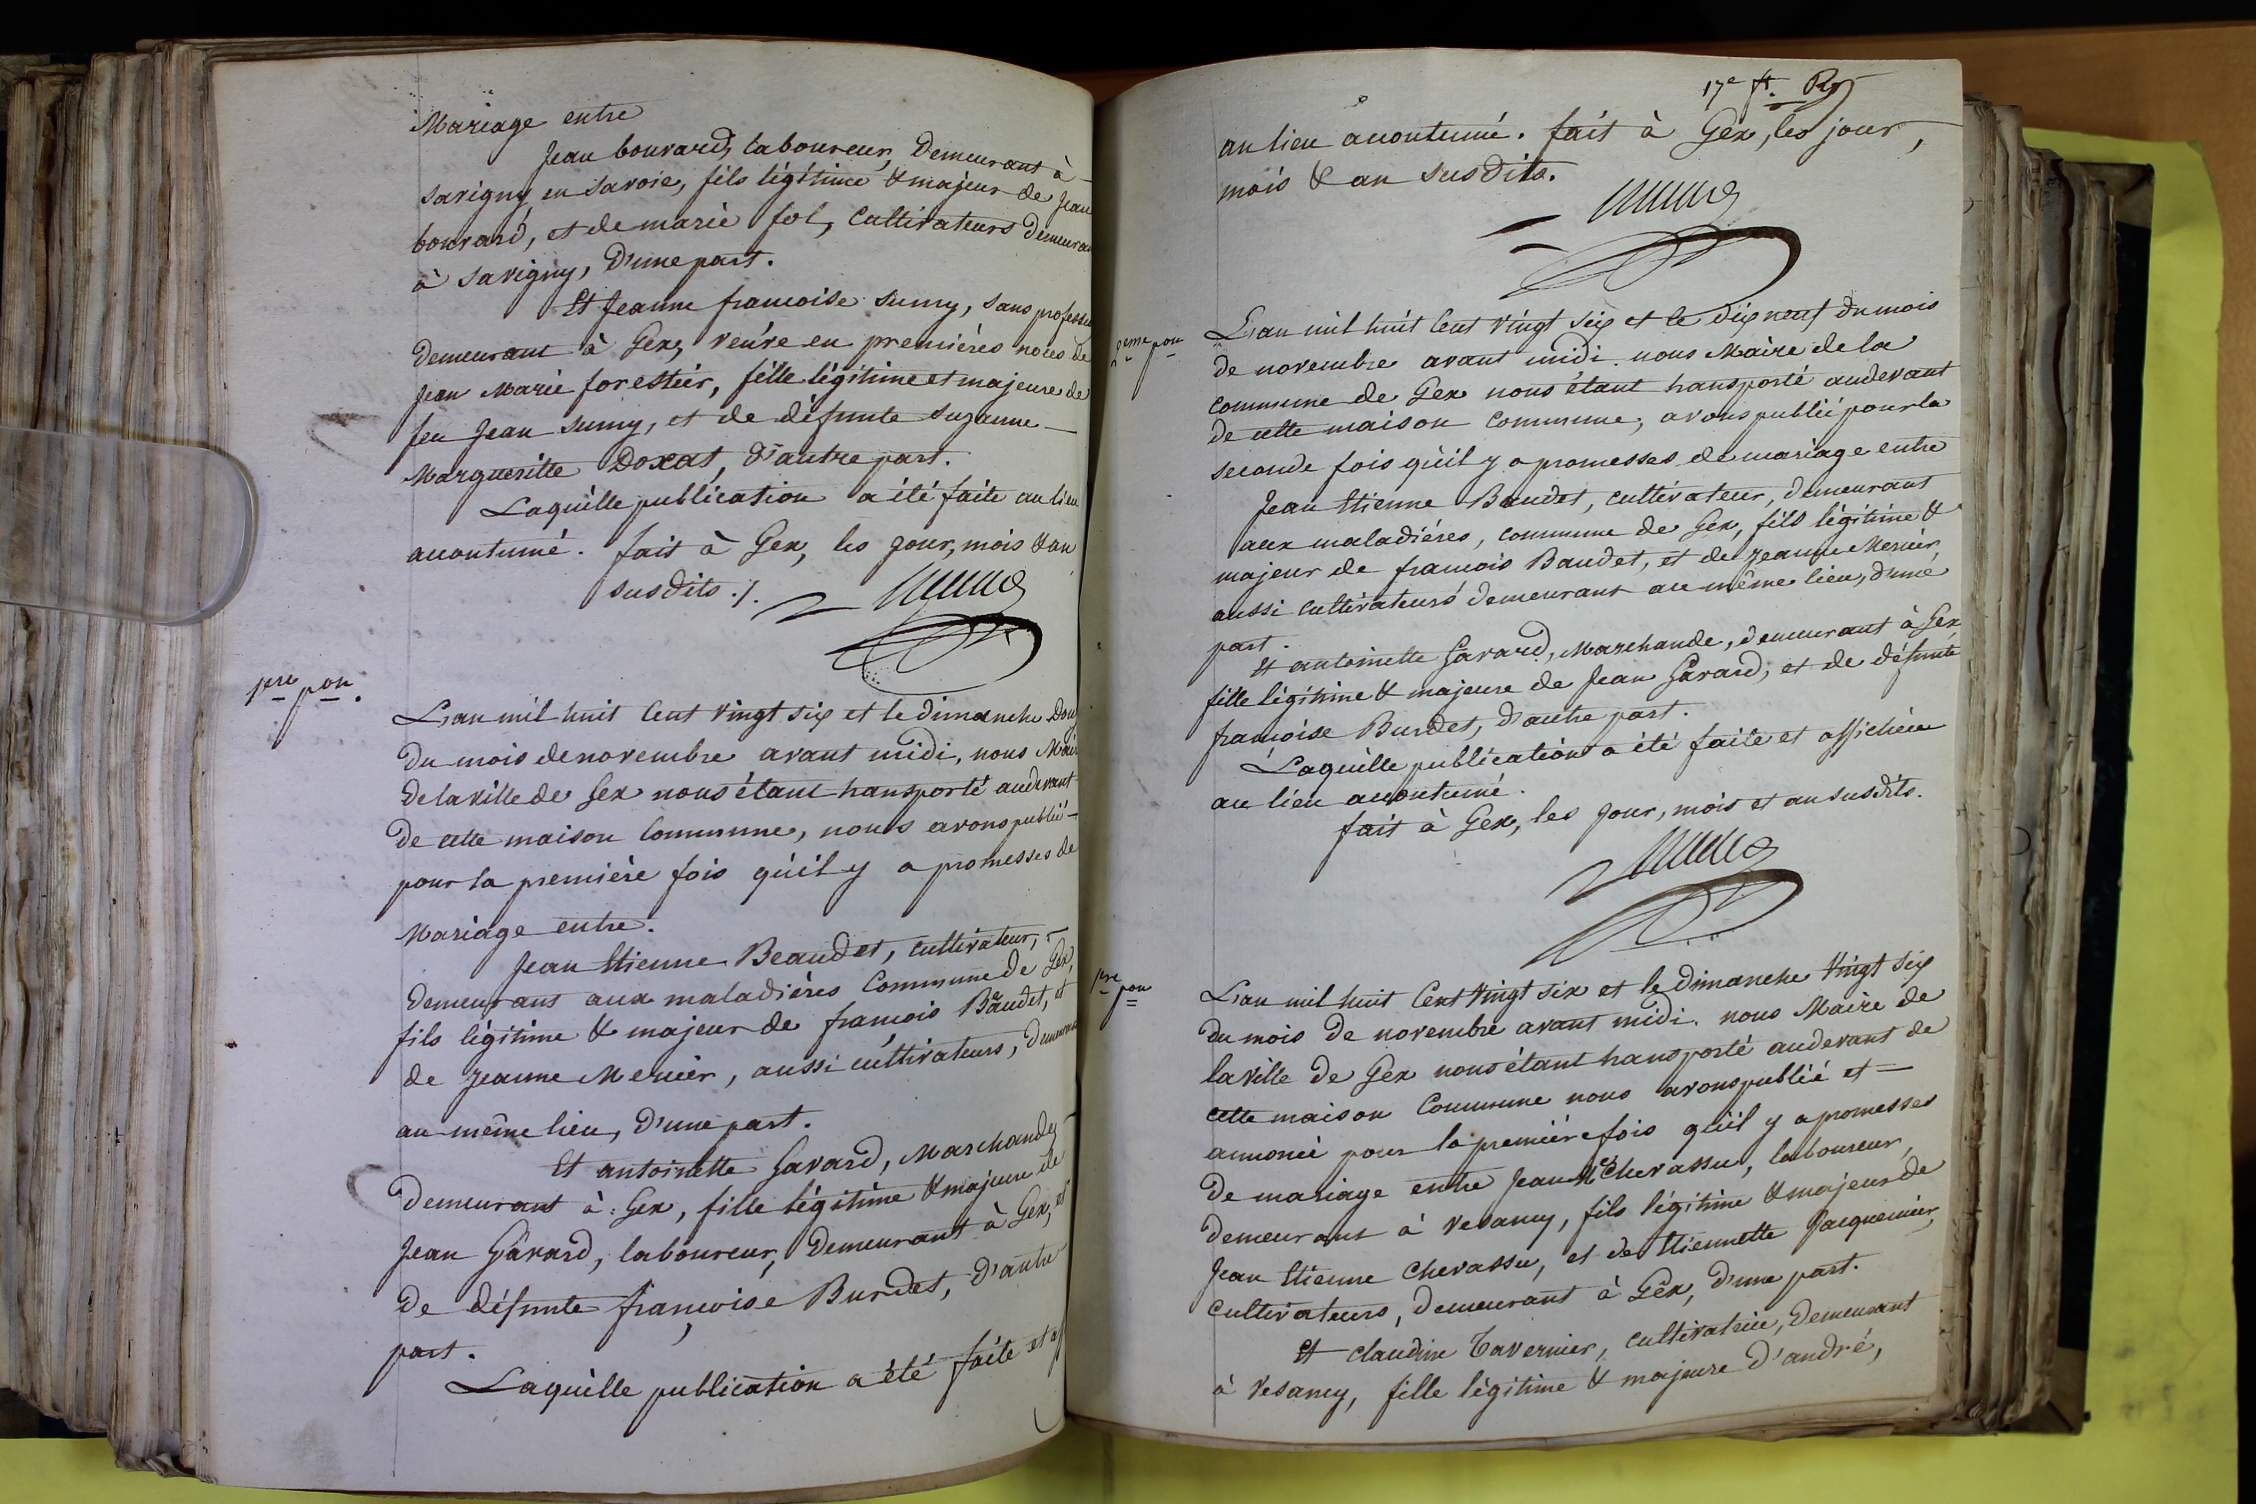 Mariage entre
Jean bouvard, laboureur, demeurant à
savigny en savoie, fils légitime & majeur de Jean
bouvard, et de marie fol, cultivateurs demeuran
à savigny, d'une part.
Et Jeanne francoise sumy, sans profession
demeurant à Gex, veuve en premières noces de
Jean Marie forestier, fille légitime et majeure de
feu Jean sumy, et de défunte suzanne
Marguerite Doxat, d'autre part.
Laquelle publication a été faite au lieu
accoutumé. fait à Gex, les jour, mois & an
susdits ./.
1ere pon.
L'an mil huit Cent vingt six et le dimanche Douz
du mois de novembre avant midi, nous Maire
de la ville de Gex nous étant transporté audevant
de cette maison Commune, nous avons publié
pour la première fois qu'il y a promesses de
Mariage entre.
Jean Etienne Beaudet, cultivateur,
demeurant aux maladières Commune de Gex,
fils légitime & majeur de francois Beaudet, et
de Jeanne Mercier, aussi cultivateurs, demeurant
au même lieu, d'une part.
Et antoinette Gavard, Marchande
demeurant à Gex, fille légitime & majeure de
Jean Gavard, laboureur, demeurant à Gex, et
de défunte françoise Burdet, d'autre
part.
Laquelle publication a été faite et aff
17e ft.
au lieu accoutumé. fait à Gex, les jour,
mois & an susdits.
2eme pon
L'an mil huit Cent vingt six et le dix neuf du mois
de novembre avant midi nous Maire de la
commune de Gex nous étant transporté audevant
de cette maison Commune, avons publié pour la
seconde fois qu'il y a promesses de mariage entre
Jean Etienne Baudet, cultivateur, demeurant
aux maladières, commune de Gex, fils légitime &
majeur de francois Baudet, et de Jeanne Mercier,
aussi cultivateurs demeurant au même lieu, d'une
part.
Et antoinette Gavard, Marchande, demeurant à Gex
fille légitime & majeure de Jean Gavard, et de défunte
francoise Burdet, d'autre part.
Laquelle publication a été faite et affichée
au lieu accoutumé.
fait à Gex, les jour, mois et an susdits.
1ere pon
L'an mil huit Cent Vingt six et le dimanche Vingt six
du mois de novembre avant midi. nous Maire de
la ville de Gex nous étant transporté audevant de
cette maison Commune nous avons publié et
annoncé pour la première fois qu'il y a promesses
de mariage entre Jean Chevassu, laboureur,
demeurant à vesancy, fils légitime & majeur de
Jean Etienne Chevassu, et de Etiennette Jacquemier,
cultivateurs, demeurant à Gex, d'une part.
Et claudine Tavernier, cultivatrice, demeurant
à vesancy, fille légitime & majeure d'andré,